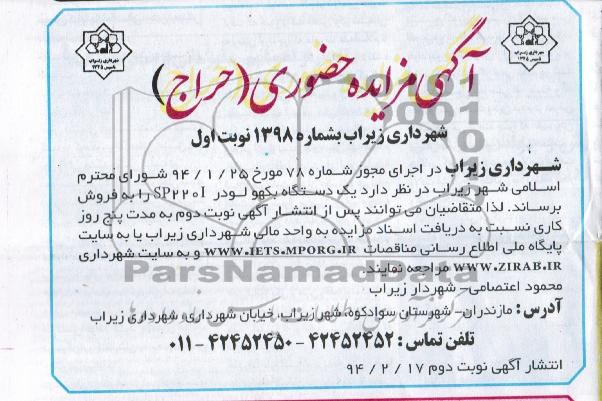 آگهی مزایده حضوری (حراج)
شهرداری زیراب بشماره ۱۳۹۸ نوبت اول
شهرداری زیراب در اجرای مجوز شماره ۷۸ مورخ ۹۴/۱/۲۵ شورای محترم
اسلامی شهر زیراب در نظر دارد یک دستگاه بکهو لودر SP۲۲۰I را به فروش
برساند. لذا متقاضیان می توانند پس از انتشار آگهی نوبت دوم به مدت پنج روز
کاری نسبت به دریافت اسناد مزایده به واحد مالی شهرداری زیراب یا به سایت
پایگاه ملی اطلاع رسانی مناقصات WWW.IETS.MPORG.IR و به سایت شهرداری
WWW.ZIRAB.IR مراجعه نمایند.
محمود اعتصامی- شهردار زیراب
آدرس: مازندران- شهرستان سوادکوه، شهر زیراب، خیابان شهرداری، شهرداری زیراب
تلفن تماس: ۴۲۴۵۲۴۵۲ - ۴۲۴۵۲۴۵۰ - ۰۱۱
انتشار آگهی نوبت دوم ۹۴/۲/۱۷
ParsNamadData